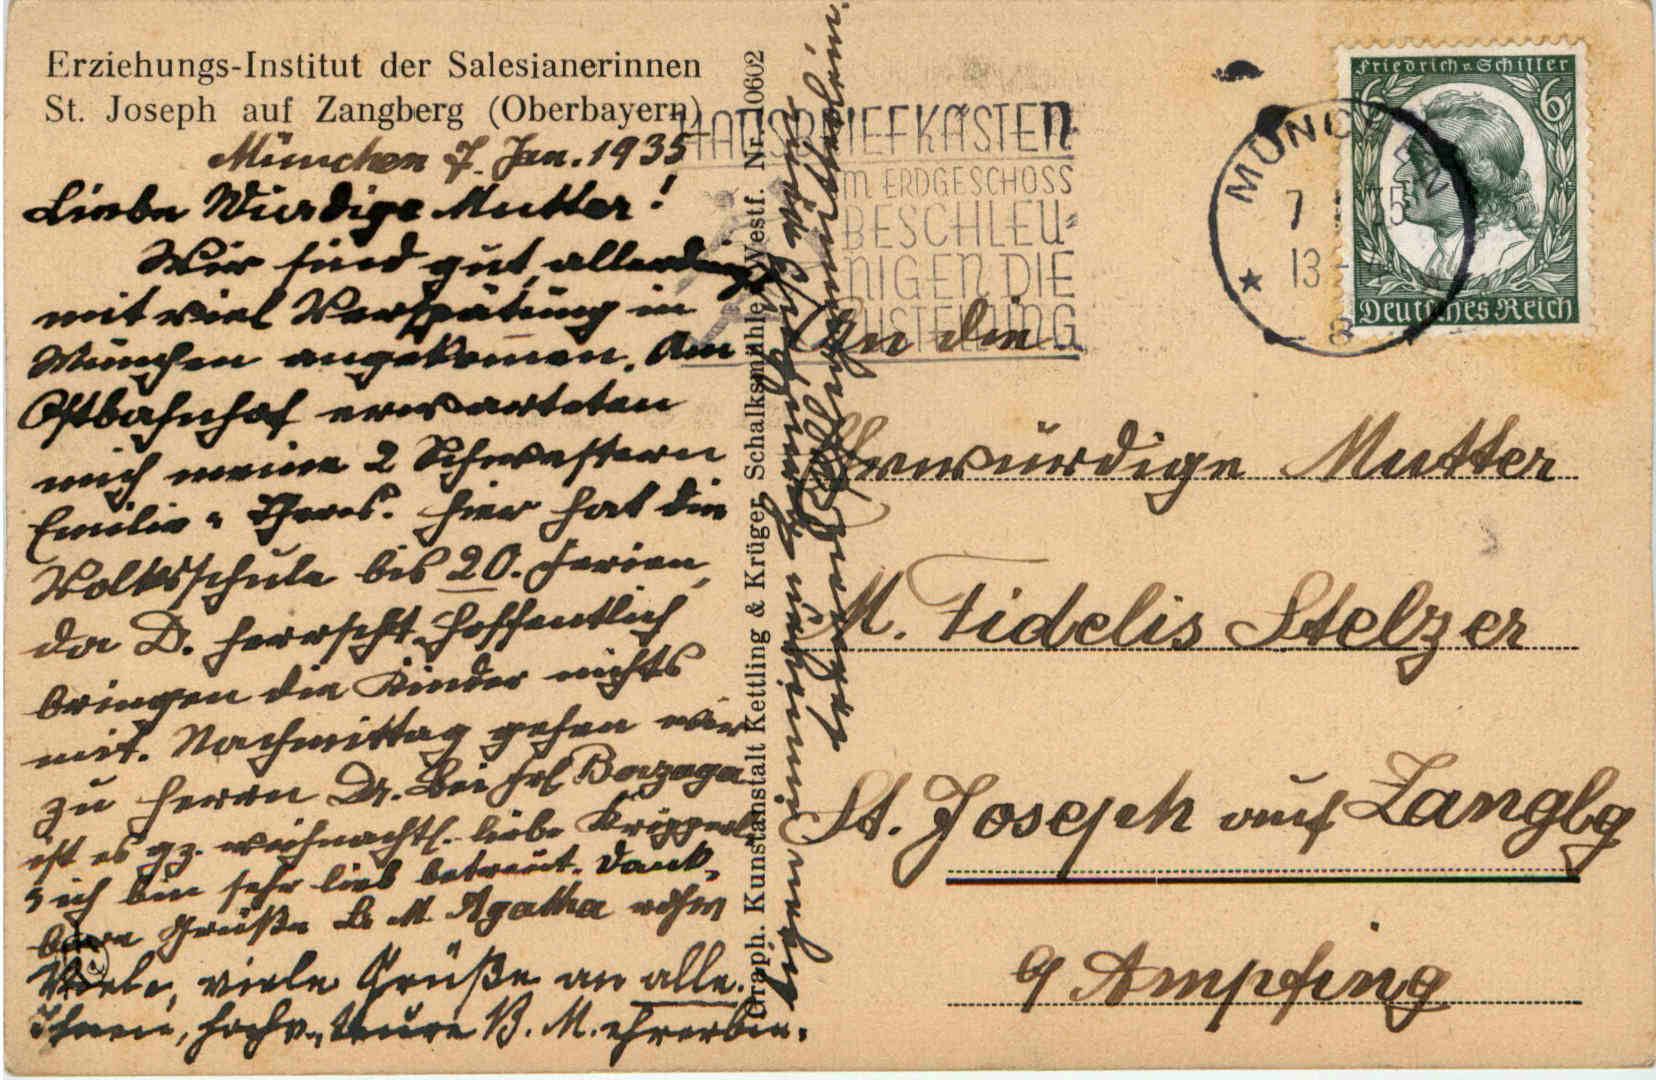 Erziehungs-Institut der Salesianerinnen
St. Joseph auf Zangberg (Oberbayern)
München 7. Jan. 1935
Liebe Würdige Mutter!
Wir sind gut, allerdings
mit viel Verspätung in
München angekommen. Am
Ostbahnhof erwarteten
mich meine 2 Schwestern
Emilie u. Theres. Hier hat die
Volksschule bis 20. Ferien,
da D. herrscht. Hoffentlich
bringen die Kinder nichts
mit. Nachmittag gehen wir
zu Herrn Dr. Bei Frl. Bazaga
ist es gz. weihnachtl. liebe Kripperl
u. ich bin sehr lieb betreut. Dank-
bare Grüße M. Agatha
Viele, viele Grüße an alle.
Ihnen, hochv., teure B. M. ehrerbie-
Graph. Kunstanstalt Kettling & Krüger, Schalksmühle i. Westf. Nr. 10602
HAUSBRIEFKÄSTEN
IM ERDGESCHOSS
BESCHLEU-
NIGEN DIE
ZUSTELLUNG
MÜNCHEN
7.1.35
13
8
Friedrich v. Schiller
6
Deutsches Reich
An die
Ehrwürdige Mutter
M. Fidelis Stelzer
St. Joseph auf Zangbg
b/ Ampfing